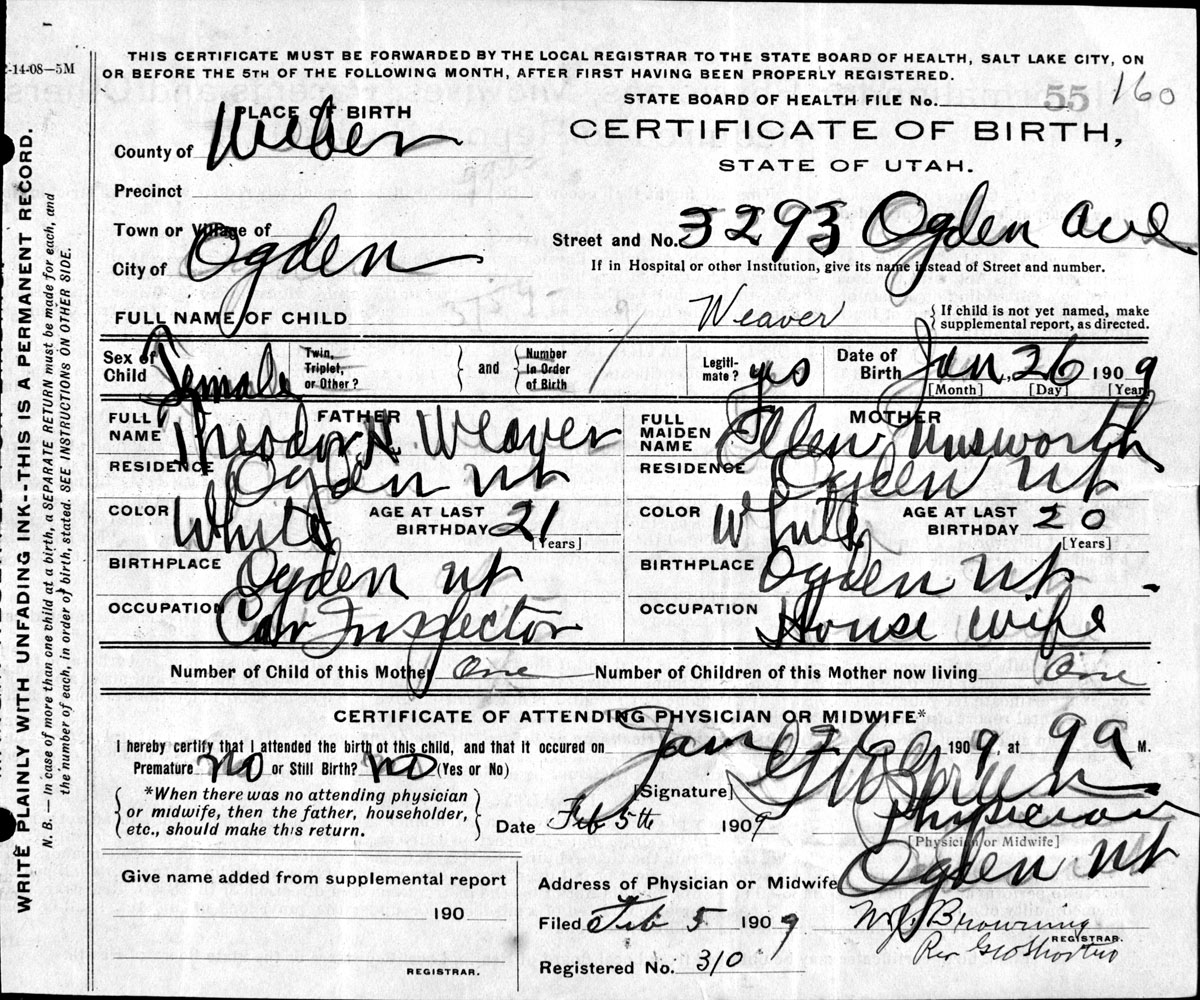 2-14-08—5M
THIS CERTIFICATE MUST BE FORWARDED BY THE LOCAL REGISTRAR TO THE STATE BOARD OF HEALTH, SALT LAKE CITY, ON
OR BEFORE THE 5TH OF THE FOLLOWING MONTH, AFTER FIRST HAVING BEEN PROPERLY REGISTERED.
WRITE PLAINLY WITH UNFADING INK--THIS IS A PERMANENT RECORD.
N. B. — In case of more than one child at a birth, a SEPARATE RETURN must be made for each, and
the number of each, in order of birth, stated. SEE INSTRUCTIONS ON OTHER SIDE.
STATE BOARD OF HEALTH FILE No. 55 160
CERTIFICATE OF BIRTH,
STATE OF UTAH.
PLACE OF BIRTH
County of Weber
Precinct
Town or Village of
City of Ogden
Street and No. 3293 Ogden Ave
If in Hospital or other Institution, give its name instead of Street and number.
FULL NAME OF CHILD Weaver
If child is not yet named, make
supplemental report, as directed.
Sex of Child Female
Twin, Triplet, or Other? and Number in Order of Birth
Legitimate? yes
Date of Birth Jan 26 1909
[Month] [Day] [Year]
FATHER
FULL NAME Theodor Weaver
RESIDENCE Ogden Ut
COLOR White AGE AT LAST BIRTHDAY 21 [Years]
BIRTHPLACE Ogden Ut
OCCUPATION Car Inspector
MOTHER
FULL MAIDEN NAME Ellen Unsworth
RESIDENCE Ogden Ut
COLOR White AGE AT LAST BIRTHDAY 20 [Years]
BIRTHPLACE Ogden Ut
OCCUPATION House wife
Number of Child of this Mother One Number of Children of this Mother now living One
CERTIFICATE OF ATTENDING PHYSICIAN OR MIDWIFE*
I hereby certify that I attended the birth of this child, and that it occured on Jan 26 1909, at 9 A M.
Premature no or Still Birth? no (Yes or No)
*When there was no attending physician
or midwife, then the father, householder,
etc., should make this return.
[Signature]
Physician
[Physician or Midwife]
Date Feb 5th 1909
Address of Physician or Midwife Ogden Ut
Give name added from supplemental report
190
REGISTRAR.
Filed Feb 5 1909
Browning
REGISTRAR.
Registered No. 310